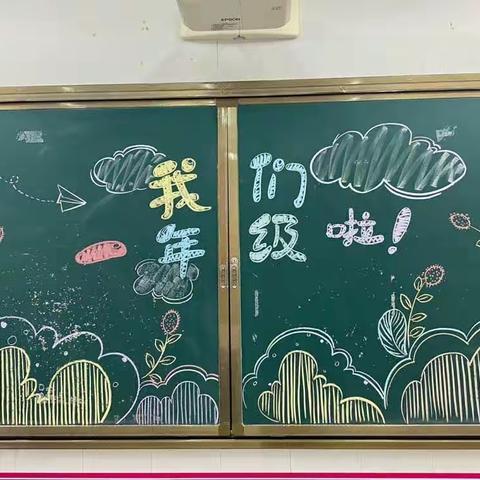 EPSON
我们
一年级啦！